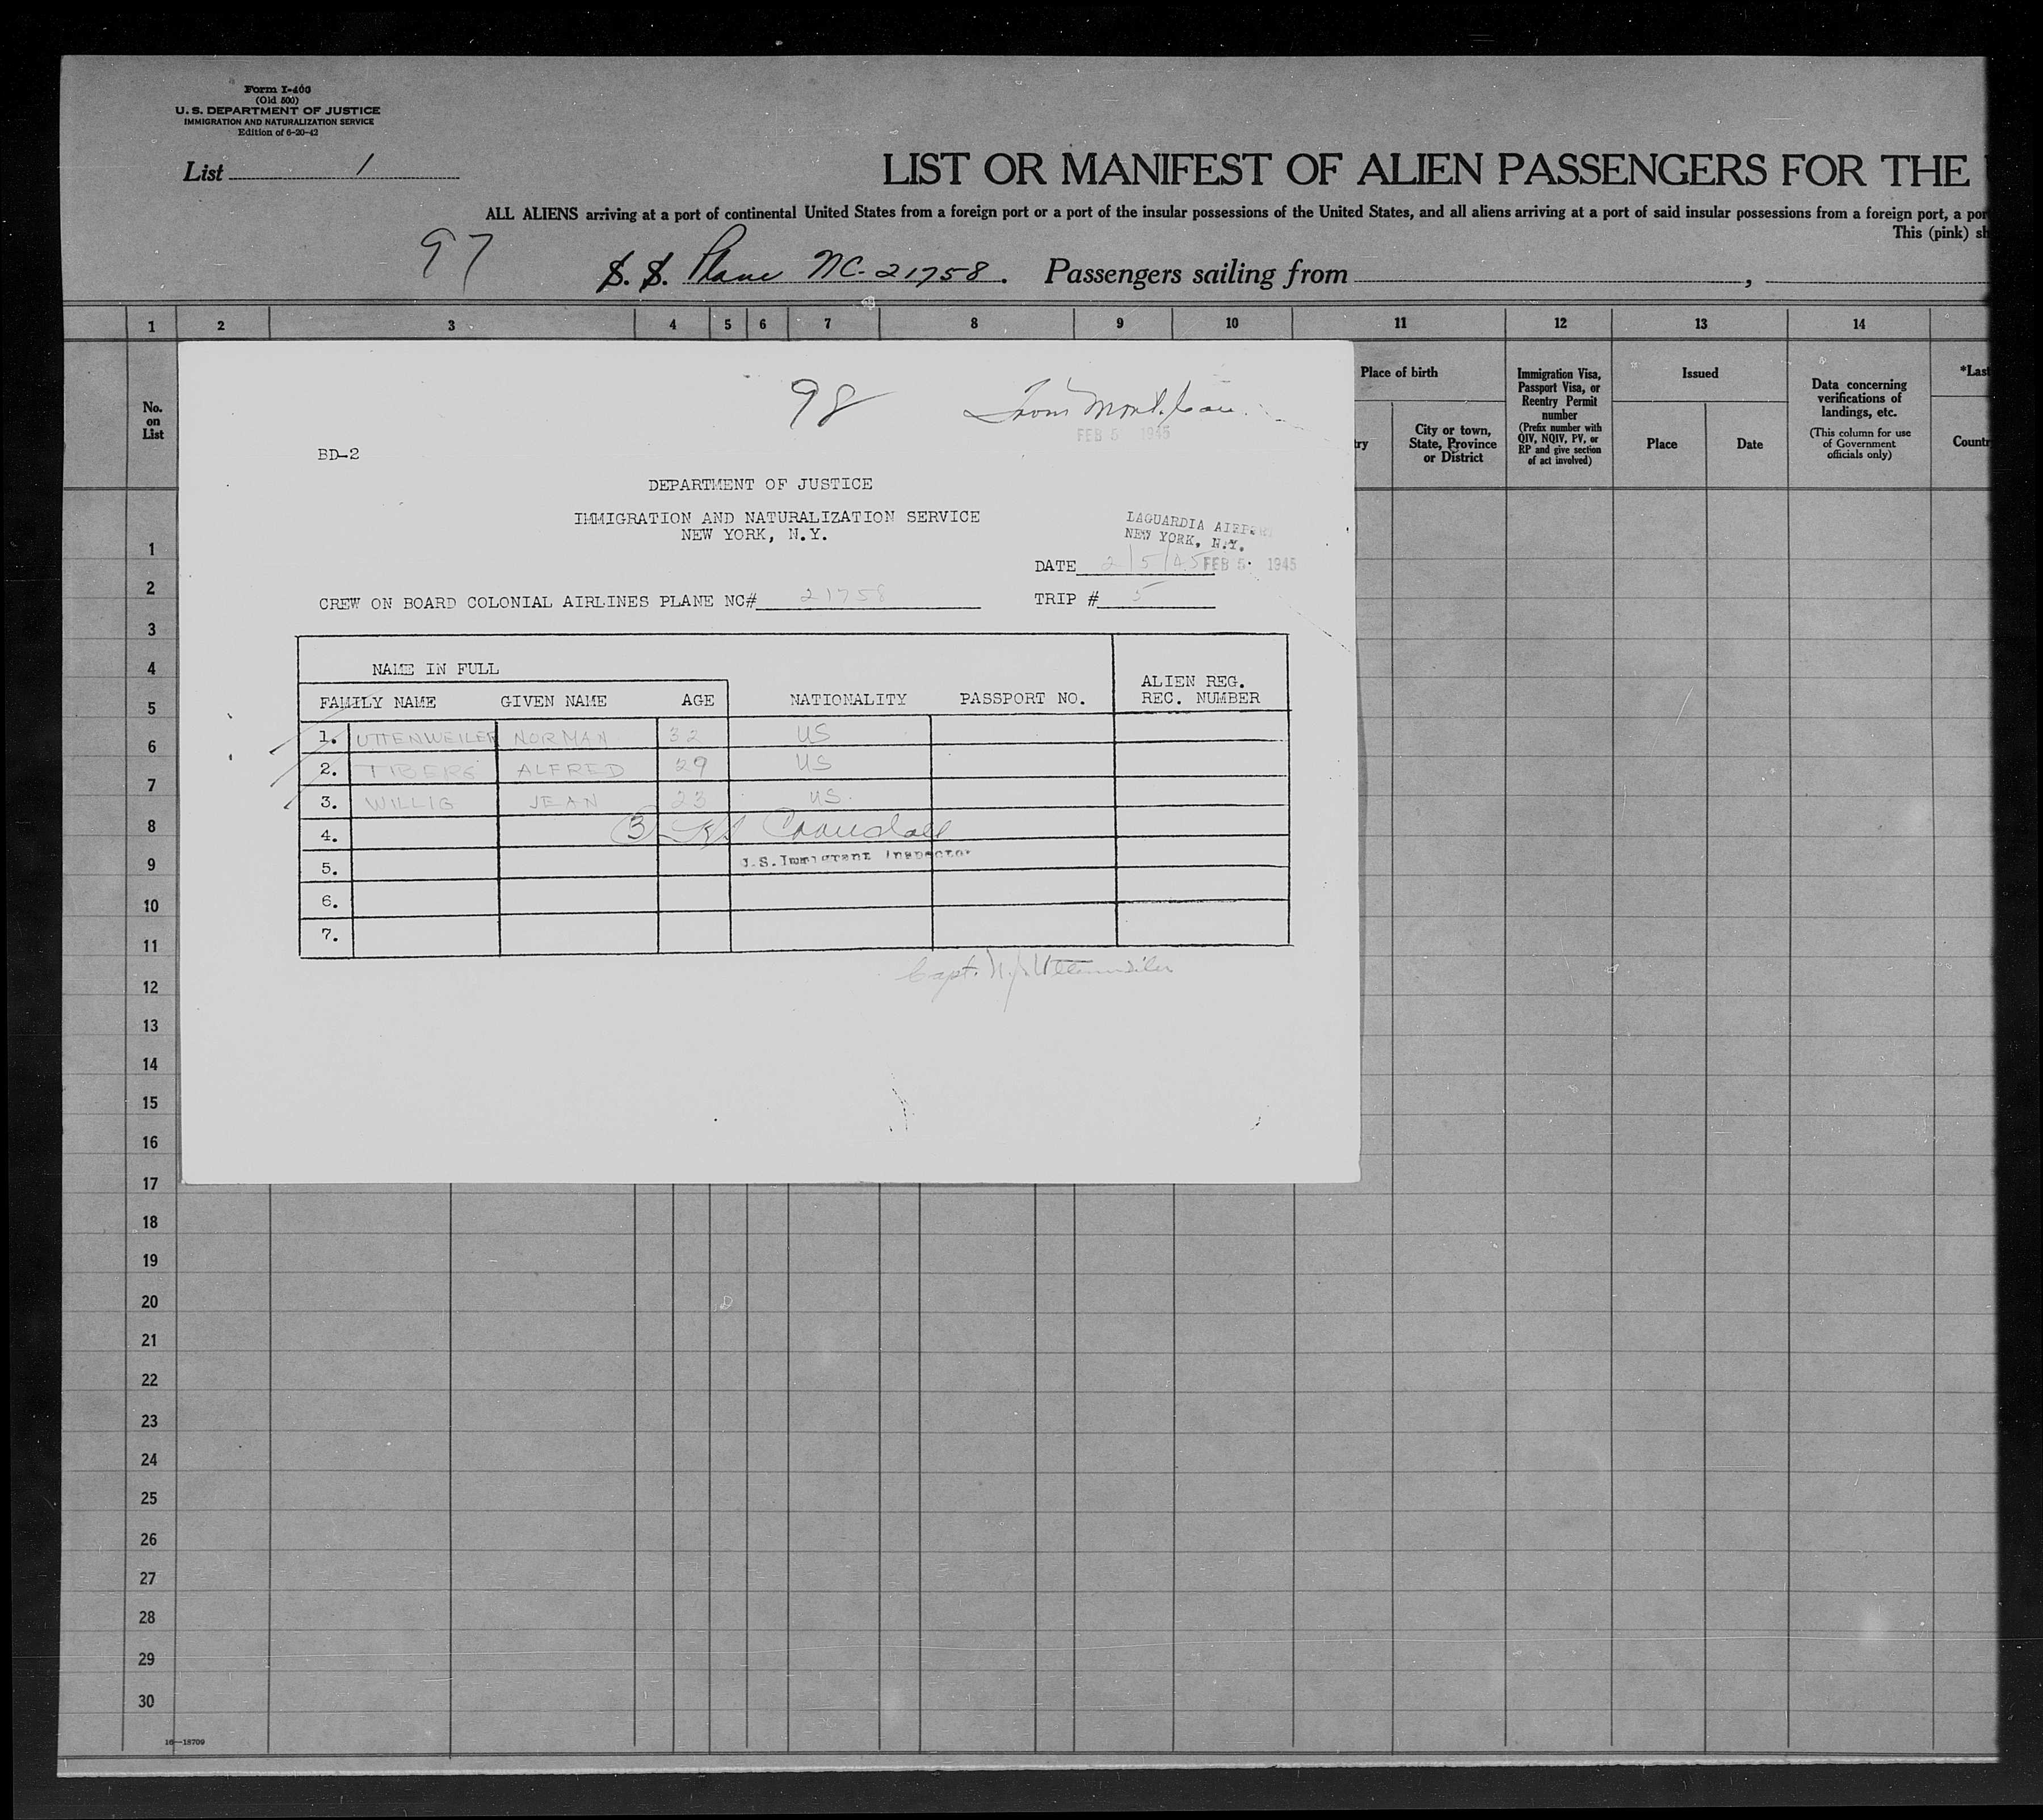 Form I-400
(Old 500)
U. S. DEPARTMENT OF JUSTICE
IMMIGRATION AND NATURALIZATION SERVICE
Edition of 6-20-42
List 1
LIST OR MANIFEST OF ALIEN PASSENGERS FOR THE
ALL ALIENS arriving at a port of continental United States from a foreign port or a port of the insular possessions of the United States, and all aliens arriving at a port of said insular possessions from a foreign port, a por
This (pink) sh
97
S. S. Plane NC-21758. Passengers sailing from ,
1 2 3 4 5 6 7 8 9 10 11 12 13 14
No. on List
Place of birth
City or town, State, Province or District
Immigration Visa, Passport Visa, or Reentry Permit number
(Prefix number with QIV, NQIV, PV, or RP and give section of act involved)
Issued
Place Date
Data concerning verifications of landings, etc.
(This column for use of Government officials only)
*Last
Countr
98
From Mont. Can.
FEB 5 1945
BD-2
DEPARTMENT OF JUSTICE
IMMIGRATION AND NATURALIZATION SERVICE
NEW YORK, N.Y.
LAGUARDIA AIRPORT
NEW YORK, N.Y.
DATE 2/5/45 FEB 5 1945
CREW ON BOARD COLONIAL AIRLINES PLANE NC# 21758 TRIP # 5
NAME IN FULL
FAMILY NAME GIVEN NAME AGE NATIONALITY PASSPORT NO. ALIEN REG. REC. NUMBER
1. UTTENWEILER NORMAN 32 US
2. TIBERG ALFRED 29 US
3. WILLIG JEAN 23 US.
4. 3 Crandall
5. U.S. Immigrant Inspector
6.
7.
Capt. N. J. Uttenweiler
1
2
3
4
5
6
7
8
9
10
11
12
13
14
15
16
17
18
19
20
21
22
23
24
25
26
27
28
29
30
16—18709